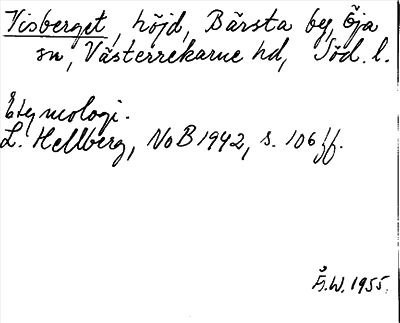 Visberget, höjd, Bärsta by, Öja
sn, Västerrekarne hd, Söd. l.
Etymologi.
L. Hellberg, NoB 1942, s. 106 ff.
Å.W. 1955.